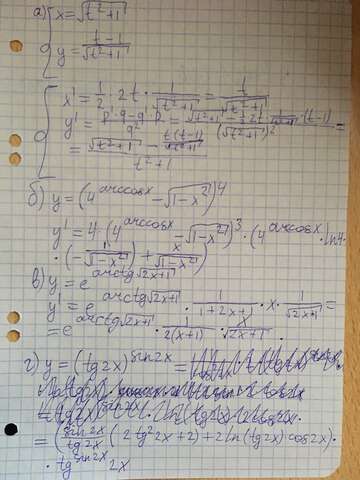 а) { x = √(t²+1)
y = (t-1)/√(t²+1)
{ x' = 1/2 · 2t · 1/√(t²+1) = t/√(t²+1)
y' = (p'·q - q'·p)/q² = (√(t²+1) - 1/2·2t · 1/√(t²+1) · (t-1))/(√(t²+1))² =
= (√(t²+1) - t(t-1)/√(t²+1))/(t²+1)
б) y = (4^(arccosx) - √(1-x²))⁴
y' = 4·(4^(arccosx) - √(1-x²))³ · (4^(arccosx) · ln4 ·
· (- 1/√(1-x²)) + x/√(1-x²))
в) y = e^(arctg√(2x+1))
y' = e^(arctg√(2x+1)) · 1/(1+2x+1) · x · 1/√(2x+1) =
= e^(arctg√(2x+1)) · 1/(2(x+1)) · x/√(2x+1)
г) y = (tg2x)^(sin2x) =
= (sin2x/tg2x (2tg²2x+2) + 2ln(tg2x)cos2x) ·
· tg^(sin2x) 2x